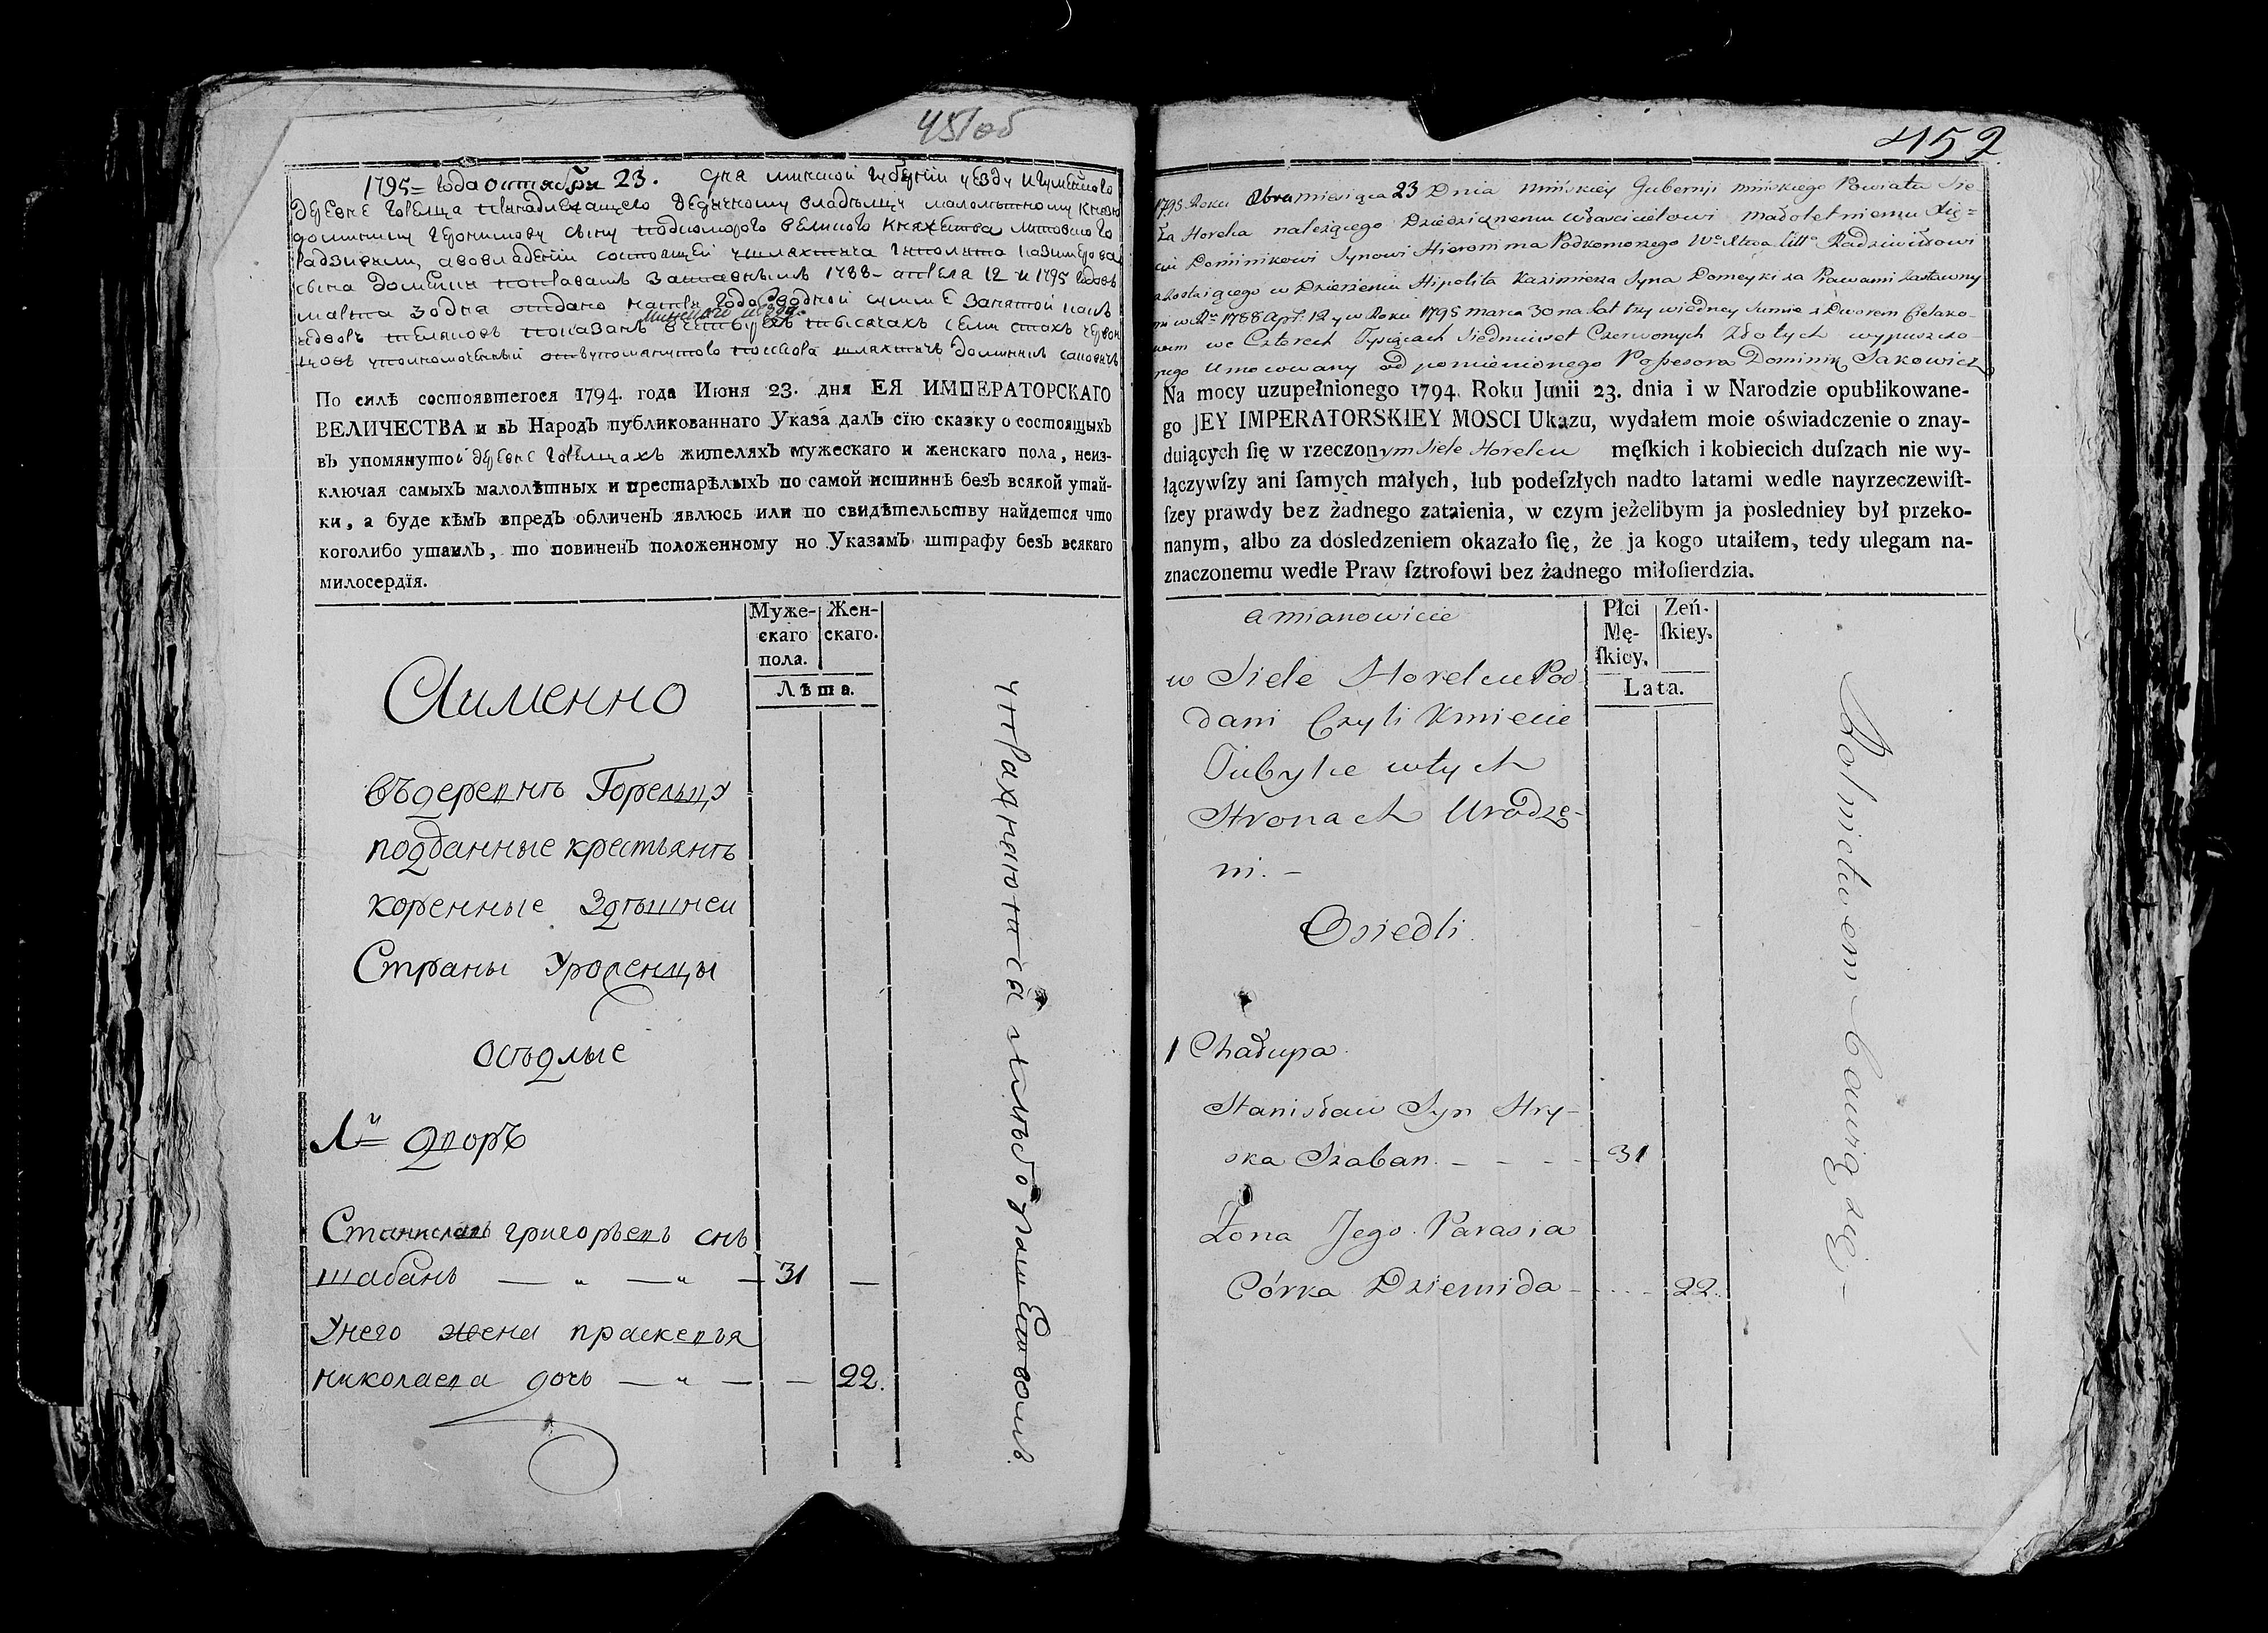 451об
1795 = года октября 23. дня минской губернии уезду игуменского
деревне Горелца принадлежащего дедичному владелцу малолетному князю
доминику иеронимову сыну подкоморого великого княжества литовского
радзивилу, а во владении состоящей шляхтича иполита казимерова
сына домейки по правам заставным 1788 - апреля 12 и 1795 годов
марта 30 дна отдано на три года в одной сумме
минского уезда.
показан в четырех тысячах семи стах червон
цов уполномоченный от вупомянутого посесора шляхтич доминик сакович
По силѣ состоявшегося 1794. года Июня 23. дня ЕЯ ИМПЕРАТОРСКАГО
ВЕЛИЧЕСТВА и въ Народъ публикованнаго Указа далъ сїю сказку о состоящыхъ
въ упомянутой деревне Горелцахъ жителяхъ мужескаго и женскаго пола, неиз-
ключая самыхъ малолѣтныхъ и престарѣлыхъ по самой истиннѣ безъ всякой утай-
ки, а буде кѣмъ впредъ обличенъ явлюсь или по свидѣтельству найдется что
коголибо утаилъ, то повиненъ положенному по Указамъ штрафу безъ всякаго
милосердїя.
Муже-
скаго
пола.
Жен-
скаго.
Лѣта.
Аименно
въдеревнѣ Горельцу
подданные крестьянѣ
коренные Здѣшнеи
Страны Уроженцы
осѣдлые
1й дворъ
Станиславъ григорьевъ снъ
шабанъ — „ — „ — 31 —
Унего жена прасковья
николаева дочь — „ — — 22.
упражняются хлѣбопашеством
452
1795 Roku 8bra miesiąca 23 Dnia Mińskiey Gubernji Mińskiego Powiatu Sie-
ła Horelca należącego Dziedzicznemu właścicielowi małoletniemu Xię=
ciu Dominikowi Synowi Hieronima Podkomorzego Wo Xtwa Litto Radziwiłłowi
a zostaiącego w Dzierżeniu Hipolita Kazimierza Syna Domeyki za Prawami Zastawny
mi w Rku 1788 Apr: 12 y w Roku 1795 Marca 30 na lat trzy w iedney Sumie z Dworem Cielako-
wem we Czterech Tysiącach Siedmiuset Czerwonych Złotych wypuszczo-
nego Umocowany od pomienionego Possesora Dominik Sakowicz
Na mocy uzupełnionego 1794. Roku Junii 23. dnia i w Narodzie opublikowane-
go JEY IMPERATORSKIEY MOSCI Ukazu, wydałem moie oświadczenie o znay-
duiących ſię w rzeczonym Siele Horelcu męſkich i kobiecich duſzach nie wy-
łączywſzy ani ſamych małych, lub podeſzłych nadto latami wedle nayrzeczewiſt-
ſzey prawdy bez żadnego zataienia, w czym jeżelibym ja posledniey był przeko-
nanym, albo za dosledzeniem okazało ſię, że ja kogo utaiłem, tedy ulegam na-
znaczonemu wedle Praw ſztrofowi bez żadnego miłoſierdzia.
Płci
Mę-
ſkiey.
Zeń-
ſkiey.
Lata.
a mianowicie
w Siele Horelcu Pod
dani Czyli Kmiecie
Tubylce wtych
Stronach Urodze-
ni. -
Osiedli.
1 Chałupa.
Stanisław Syn Hry-
ska Szaban. - - - - 31
Żona Jego Parasia
Córka Dziemida - . . . - 22.
Rolnictwem bawią się. -